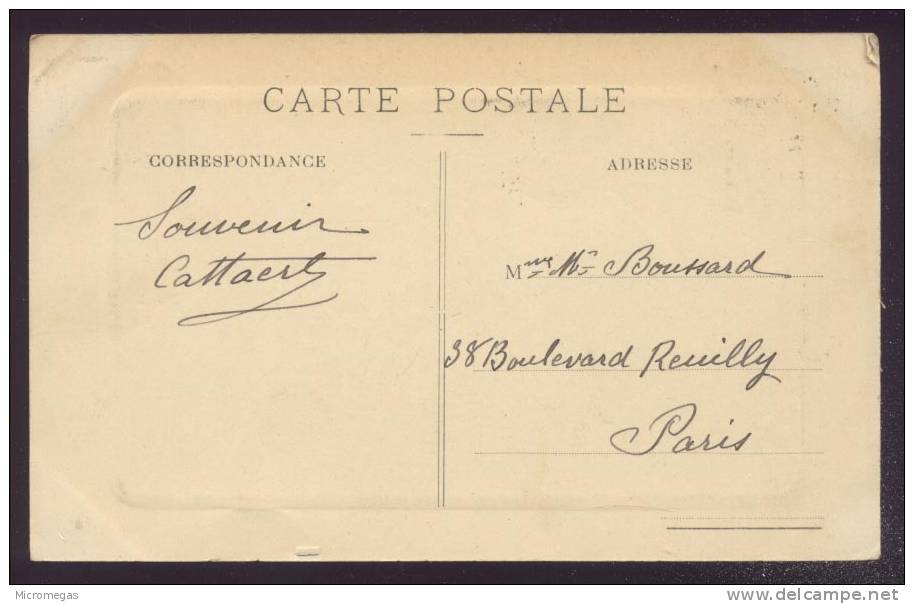 CARTE POSTALE
CORRESPONDANCE
Souvenir
Cattaert
ADRESSE
Mme Mr Boussard
38 Boulevard Reuilly
Paris
Micromegas
www.delcampe.net